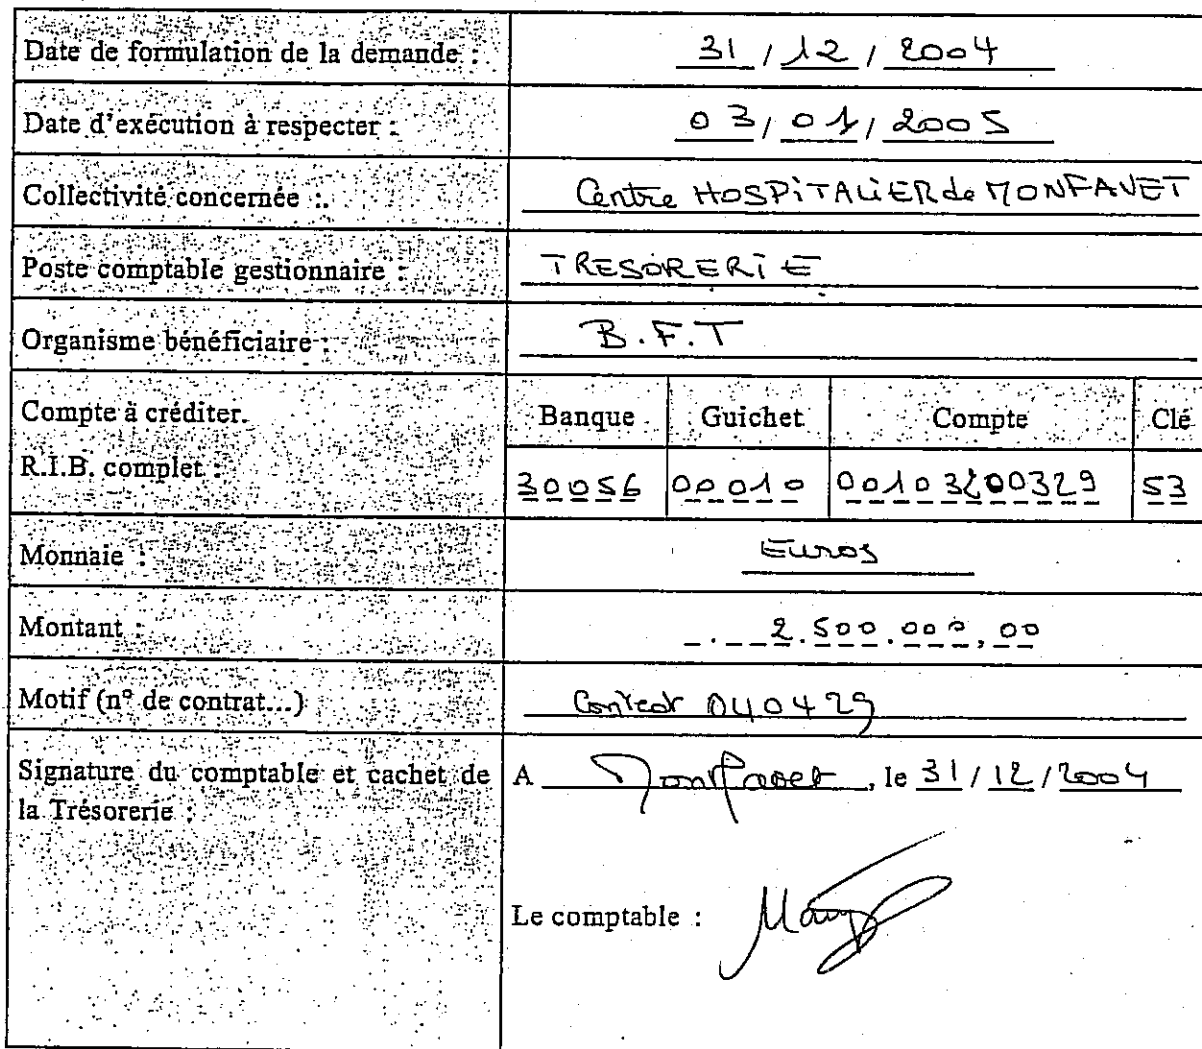 Date de formulation de la demande : 31/12/2004
Date d'exécution à respecter : 03/01/2005
Collectivité concernée : Centre HOSPiTALiER de MONFAVET
Poste comptable gestionnaire : TRESORERiE
Organisme bénéficiaire : B.F.T
Compte à créditer. Banque Guichet Compte Clé
R.I.B. complet : 30056 00010 00103200329 53
Monnaie : Euros
Montant : 2.500.000,00
Motif (n° de contrat...) Contrat 040429
Signature du comptable et cachet de A Monfavet, le 31/12/2004
la Trésorerie :
Le comptable :